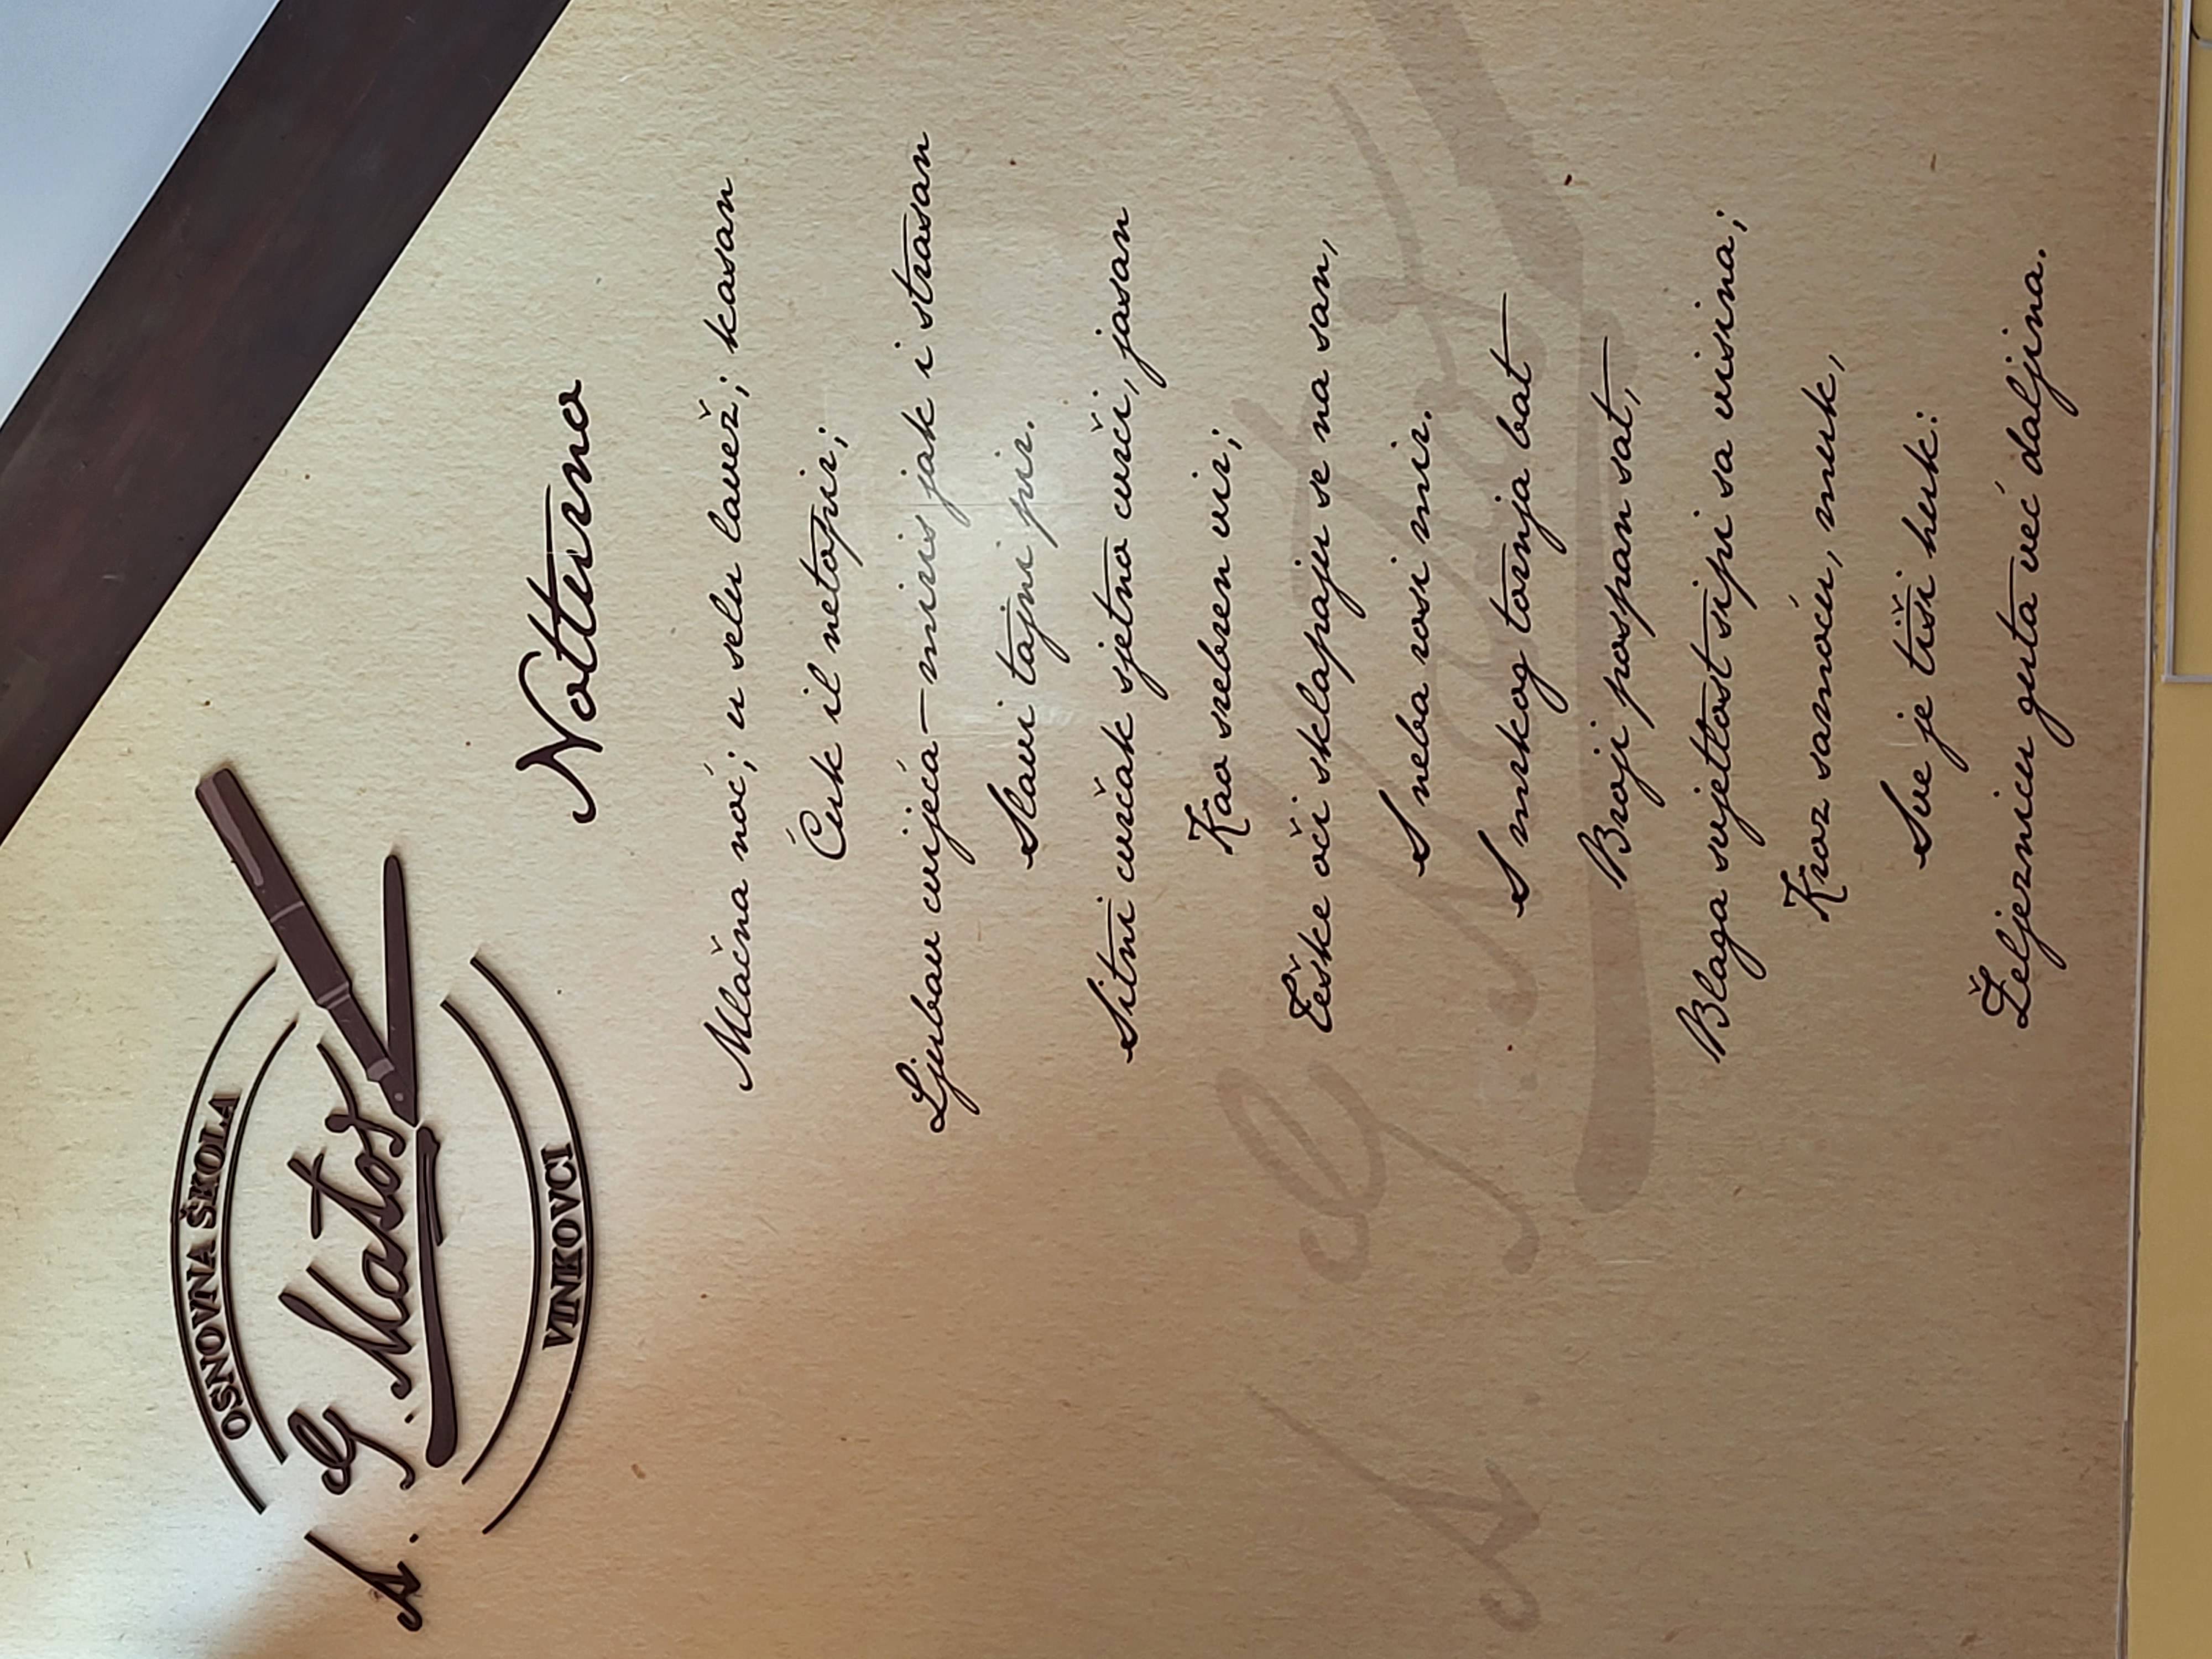 OSNOVNA ŠKOLA
A. G. Matoš
VINKOVCI
Notturno
Mlačna noć; u selu lavež; kasan
Ćuk il netopir;
Ljubav cvijeća—miris jak i strasan
Slavi tajni pir.
Sitni cvrčak sjetno cvrči, jasan
Kao srebren vir;
Teške oči sklapaju se na san,
S neba rosi mir.
S mrkog tornja bat
Broji pospan sat,
Blaga svjetlost sipi sa visina;
Kroz samoću, muk,
Sve je tiši huk:
Željeznicu guta već daljina.
A. G. Matoš